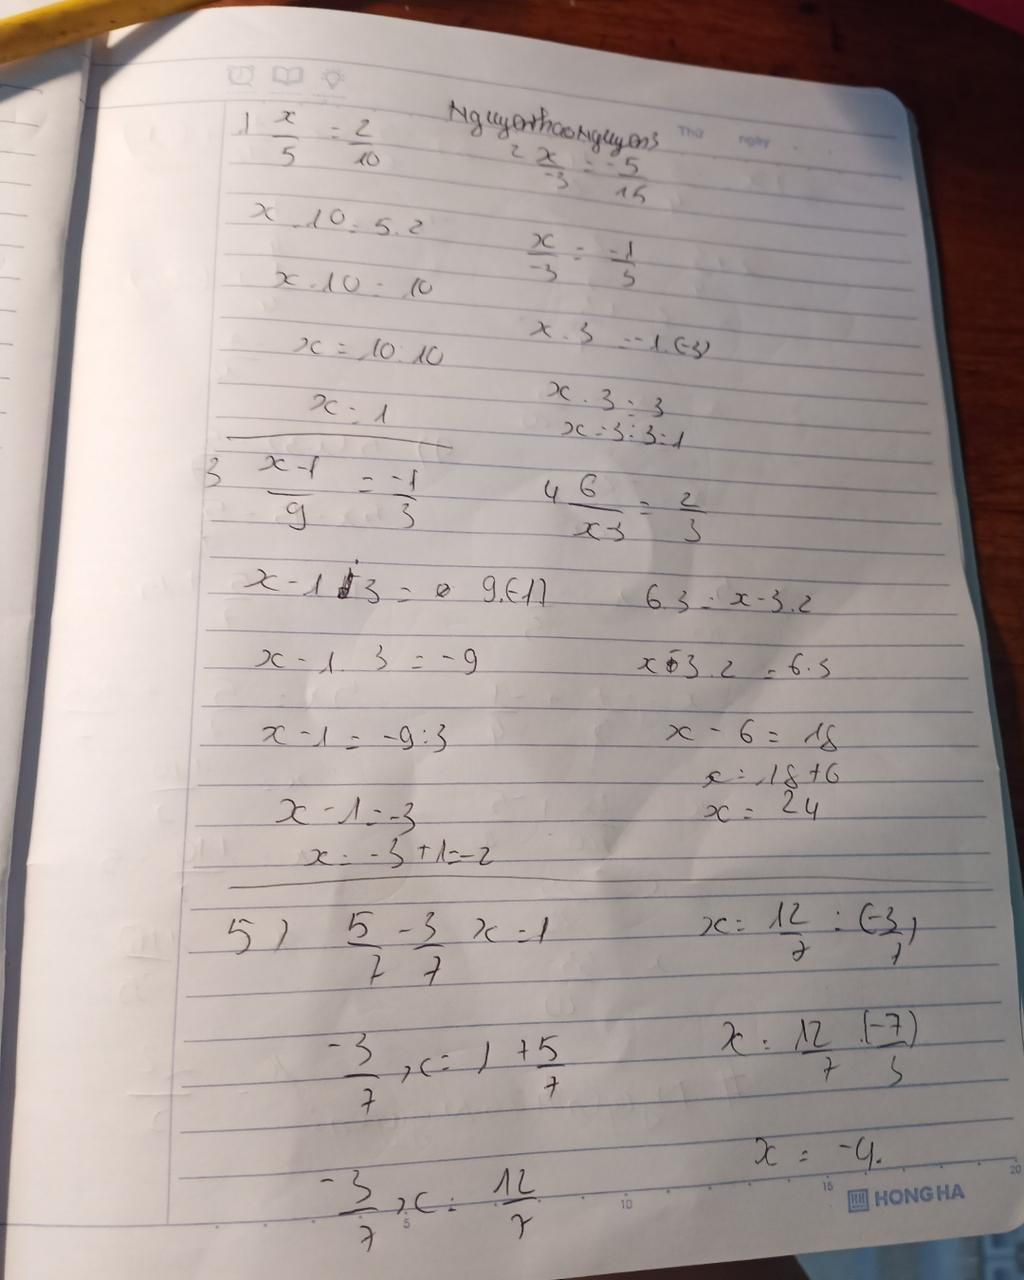 NguyenthaoNguyen3
Thứ ngày
1 x/5 = 2/10
x.10=5.2
x.10=10
x=10:10
x=1
2 x/-3 = -5/15
x/-3 = -1/3
x.3=-1.(-3)
x.3=3
x=3:3=1
3 x-1/9 = -1/3
x-1.3= 9.(-1)
x-1.3=-9
x-1=-9:3
x-1=-3
x=-3+1=-2
4 6/x-3 = 2/3
6.3=x-3.2
x-3.2=6.3
x-6=18
x=18+6
x=24
5) 5/7 - 3/7 x=1
-3/7 x=1+5/7
-3/7 x=12/7
x=12/7:(-3/7)
x=12/7.(-7/3)
x=-4.
5 10 15 20
HONG HA